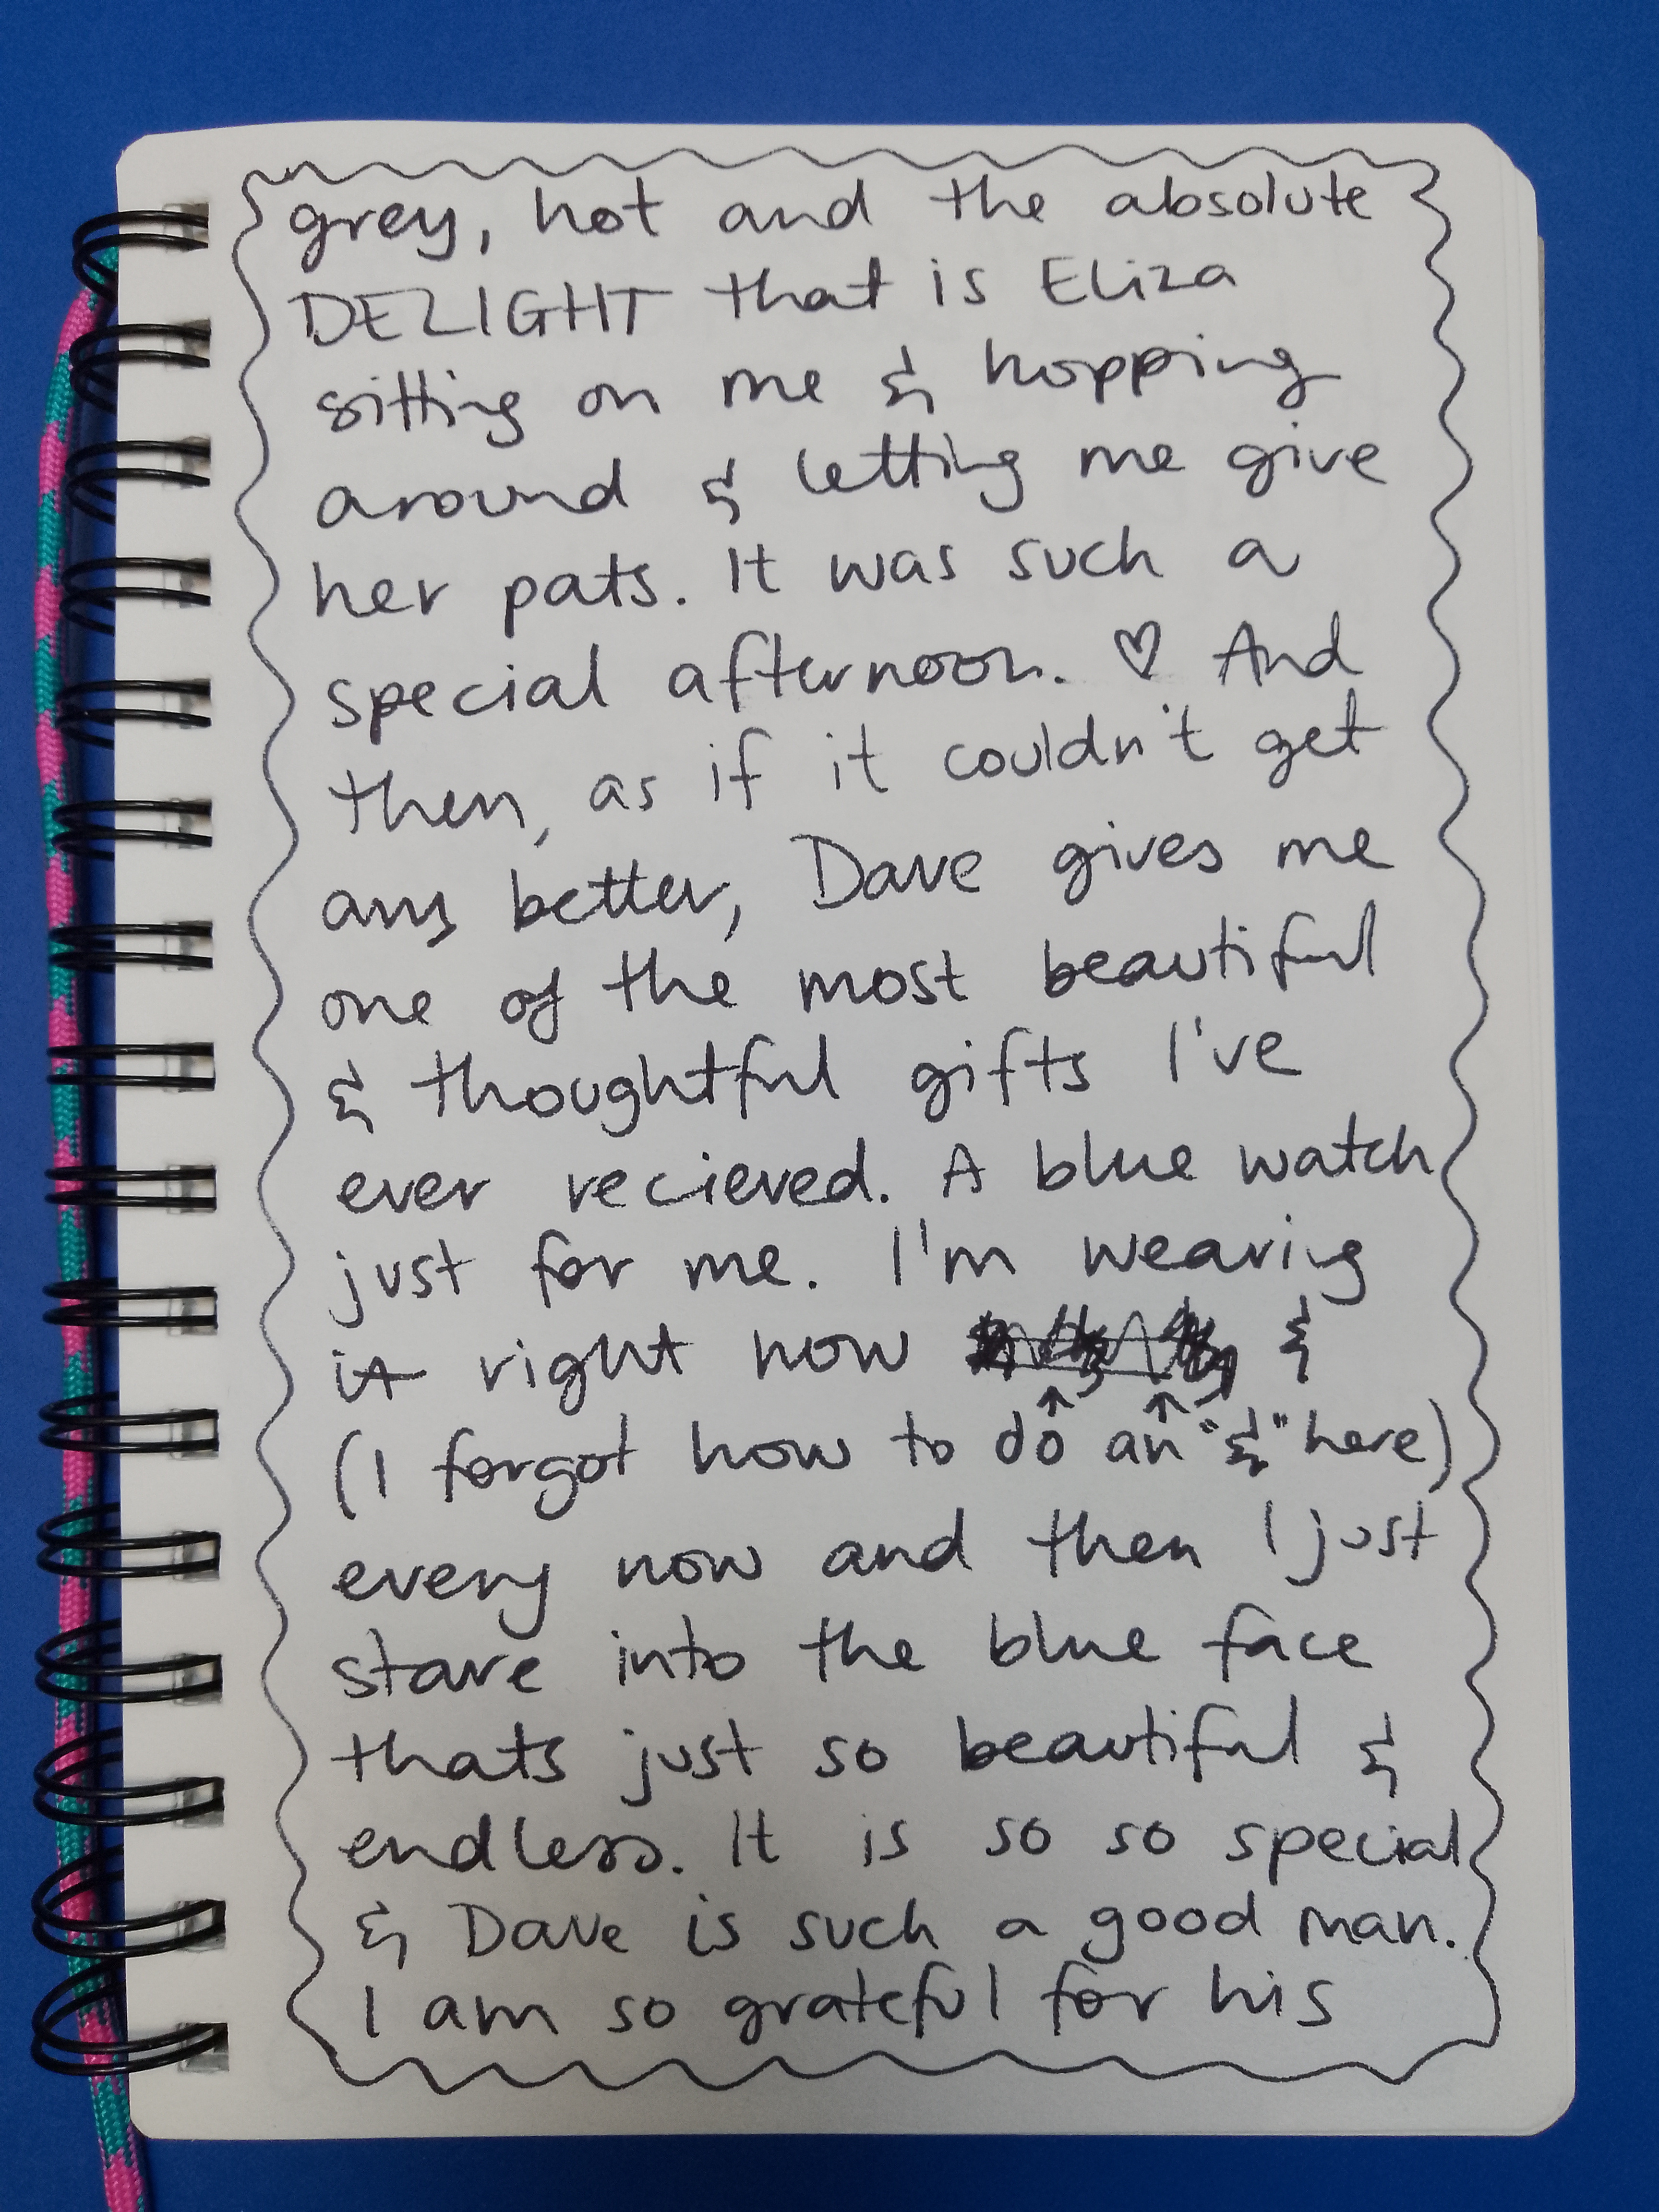 grey, hot and the absolute
DELIGHT that is Eliza
sitting on me & hopping
around & letting me give
her pats. It was such a
special afternoon. ♡ And
then, as if it couldn't get
any better, Dave gives me
one of the most beautiful
& thoughtful gifts I've
ever recieved. A blue watch
just for me. I'm wearing
it right now &
(I forgot how to do an "&" here)
every now and then I just
stare into the blue face
thats just so beautiful &
endless. It is so so special
& Dave is such a good man.
I am so grateful for his